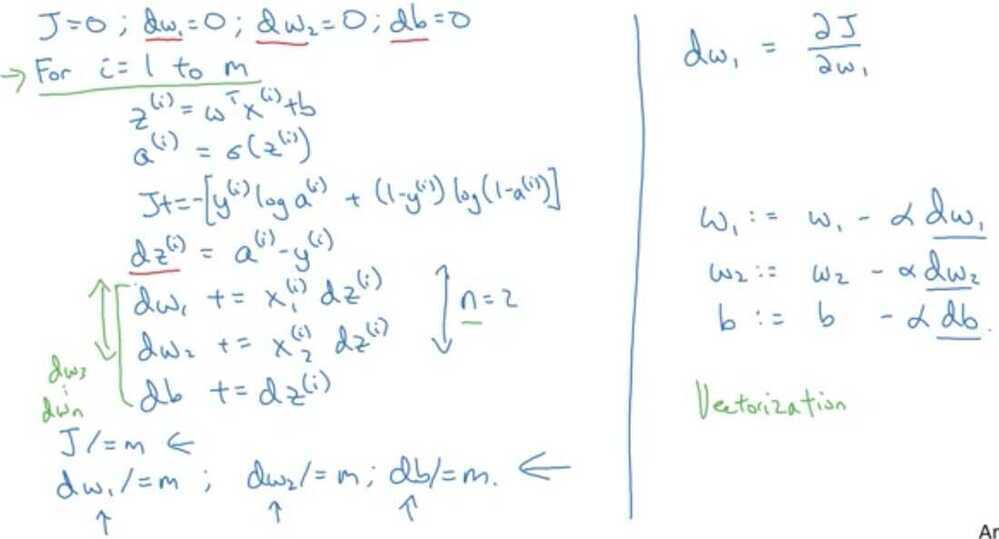 J=0 ; dw₁=0 ; dw₂=0 ; db=0
→ For i = 1 to m
z⁽ⁱ⁾ = ωᵀx⁽ⁱ⁾+b
a⁽ⁱ⁾ = σ(z⁽ⁱ⁾)
J+=-[y⁽ⁱ⁾ log a⁽ⁱ⁾ + (1-y⁽ⁱ⁾) log(1-a⁽ⁱ⁾)]
dz⁽ⁱ⁾ = a⁽ⁱ⁾-y⁽ⁱ⁾
dw₁ += x₁⁽ⁱ⁾ dz⁽ⁱ⁾
dw₂ += x₂⁽ⁱ⁾ dz⁽ⁱ⁾
n=2
db += dz⁽ⁱ⁾
dw₃
⋮
dwₙ
J /=m ←
dw₁/=m ; dw₂/=m ; db/=m. ←
↑ ↑ ↑
dw₁ = ∂J/∂w₁
w₁ := w₁ - α dw₁
w₂ := w₂ - α dw₂
b := b - α db.
Vectorization
An